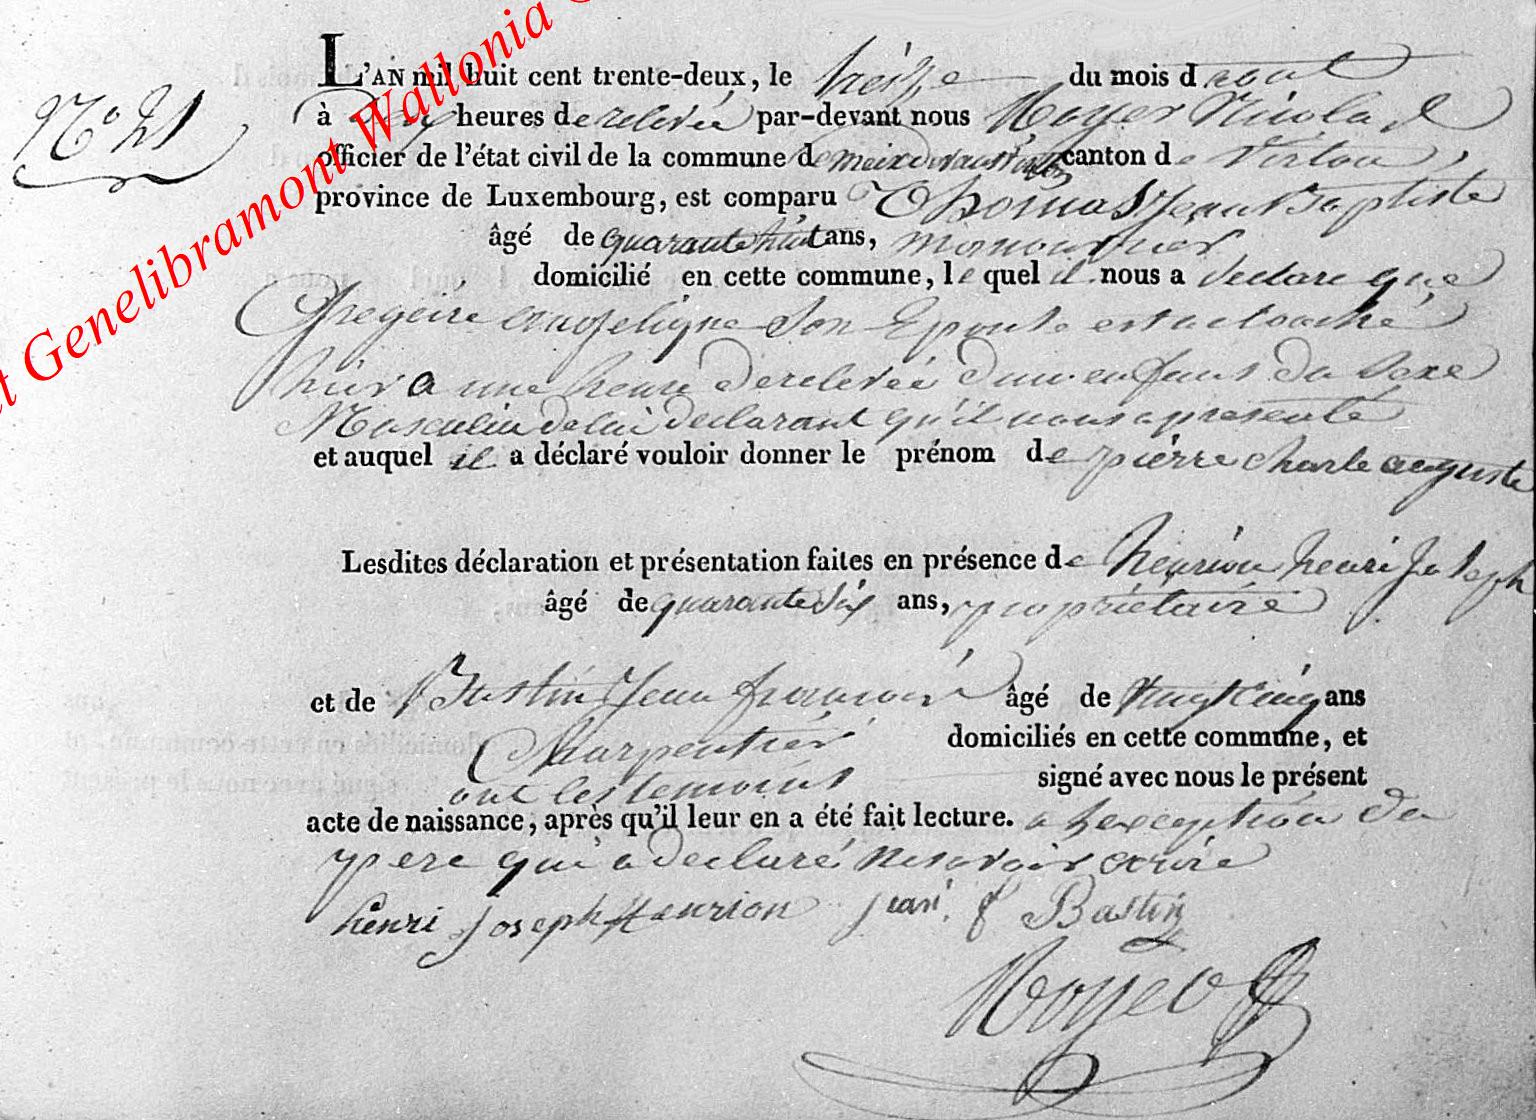 t Genelibramont Wallonia
N° 21
L'AN mil huit cent trente-deux, le treize du mois d'aout
à dix heures de relevée par-devant nous Nicola
officier de l'état civil de la commune de meix devant virton canton de Virton,
province de Luxembourg, est comparu Thomas Jean Baptiste
âgé de quarante huit ans, manouvrier
domicilié en cette commune, le quel il nous a declare que
Gregoire angelique son Epouse est accouché
hier a une heure de relevée d'un enfant du sexe
Masculin de lui declarant qu'il nous a presenté
et auquel il a déclaré vouloir donner le prénom de pierre charle auguste
Lesdites déclaration et présentation faites en présence de henrion henri Joseph
âgé de quarante six ans, propriétaire
et de Bastin Jean francois âgé de vingt cinq ans
Charpentier domiciliés en cette commune, et
ont les temoins signé avec nous le présent
acte de naissance, après qu'il leur en a été fait lecture. a l'exception du
pere qui a declaré ne savoir ecrire
henri joseph henrion jean f Bastin